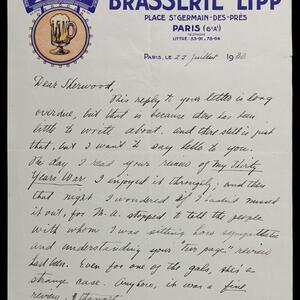 BRASSERIE LIPP
PLACE ST GERMAIN-DES-PRÉS
PARIS (6e)
TÉLÉPHONE
LITTRÉ: 53-91, 78-64
PARIS, LE 22 Juillet 19
Dear Sherwood,
This reply to your letter is long
overdue, but that is because there has been
little to write about. and there still is just
that, but I want to say hello to you.
The day I read your review of My Thirty
Years' War I enjoyed it throughly, and then
that night I wondered if I hadn't missed
it out, for M. A. stopped to tell the people
with whom I was sitting how sympathetic
and understanding your "two page" review
had been. Even for one of the gals, she's a
strange case. Anyhow, it was a fine
review, I thought